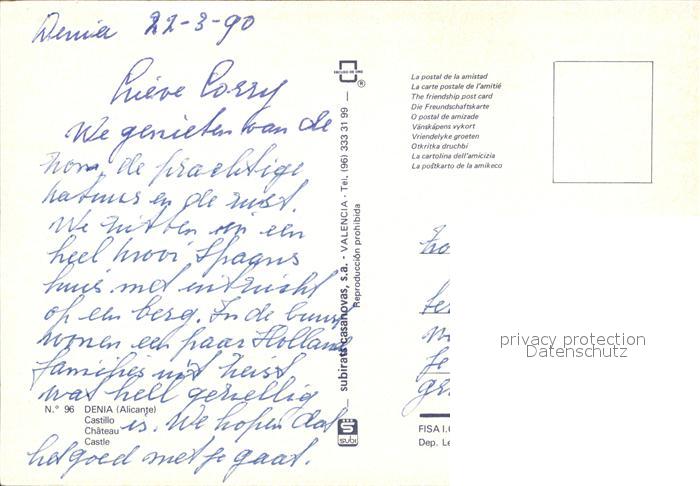 Denia 22-3-90
Lieve Corry
We genieten van de
zon, de prachtige
natuur en de rust.
We zitten in een
heel mooi Spaans
huis met uitzicht
op een berg. In de buurt
wonen een paar Hollandse
families uit Zeist
wat heel gezellig
is. We hopen dat
het goed met je gaat.
N.° 96 DENIA (Alicante)
Castillo
Château
Castle
subirats casanovas, s.a. - VALENCIA - Tel. (96) 333 31 99
Reproducción prohibida
®
subi
La postal de la amistad
La carte postale de l'amitié
The friendship post card
Die Freundschaftskarte
O postal de amizade
Vänskåpens vykort
Vriendelyke groeten
Otkritka druchbi
La cartolina dell'amicizia
La poŝtkarto de la amikeco
privacy protection
Datenschutz
FISA I.
Dep. Le